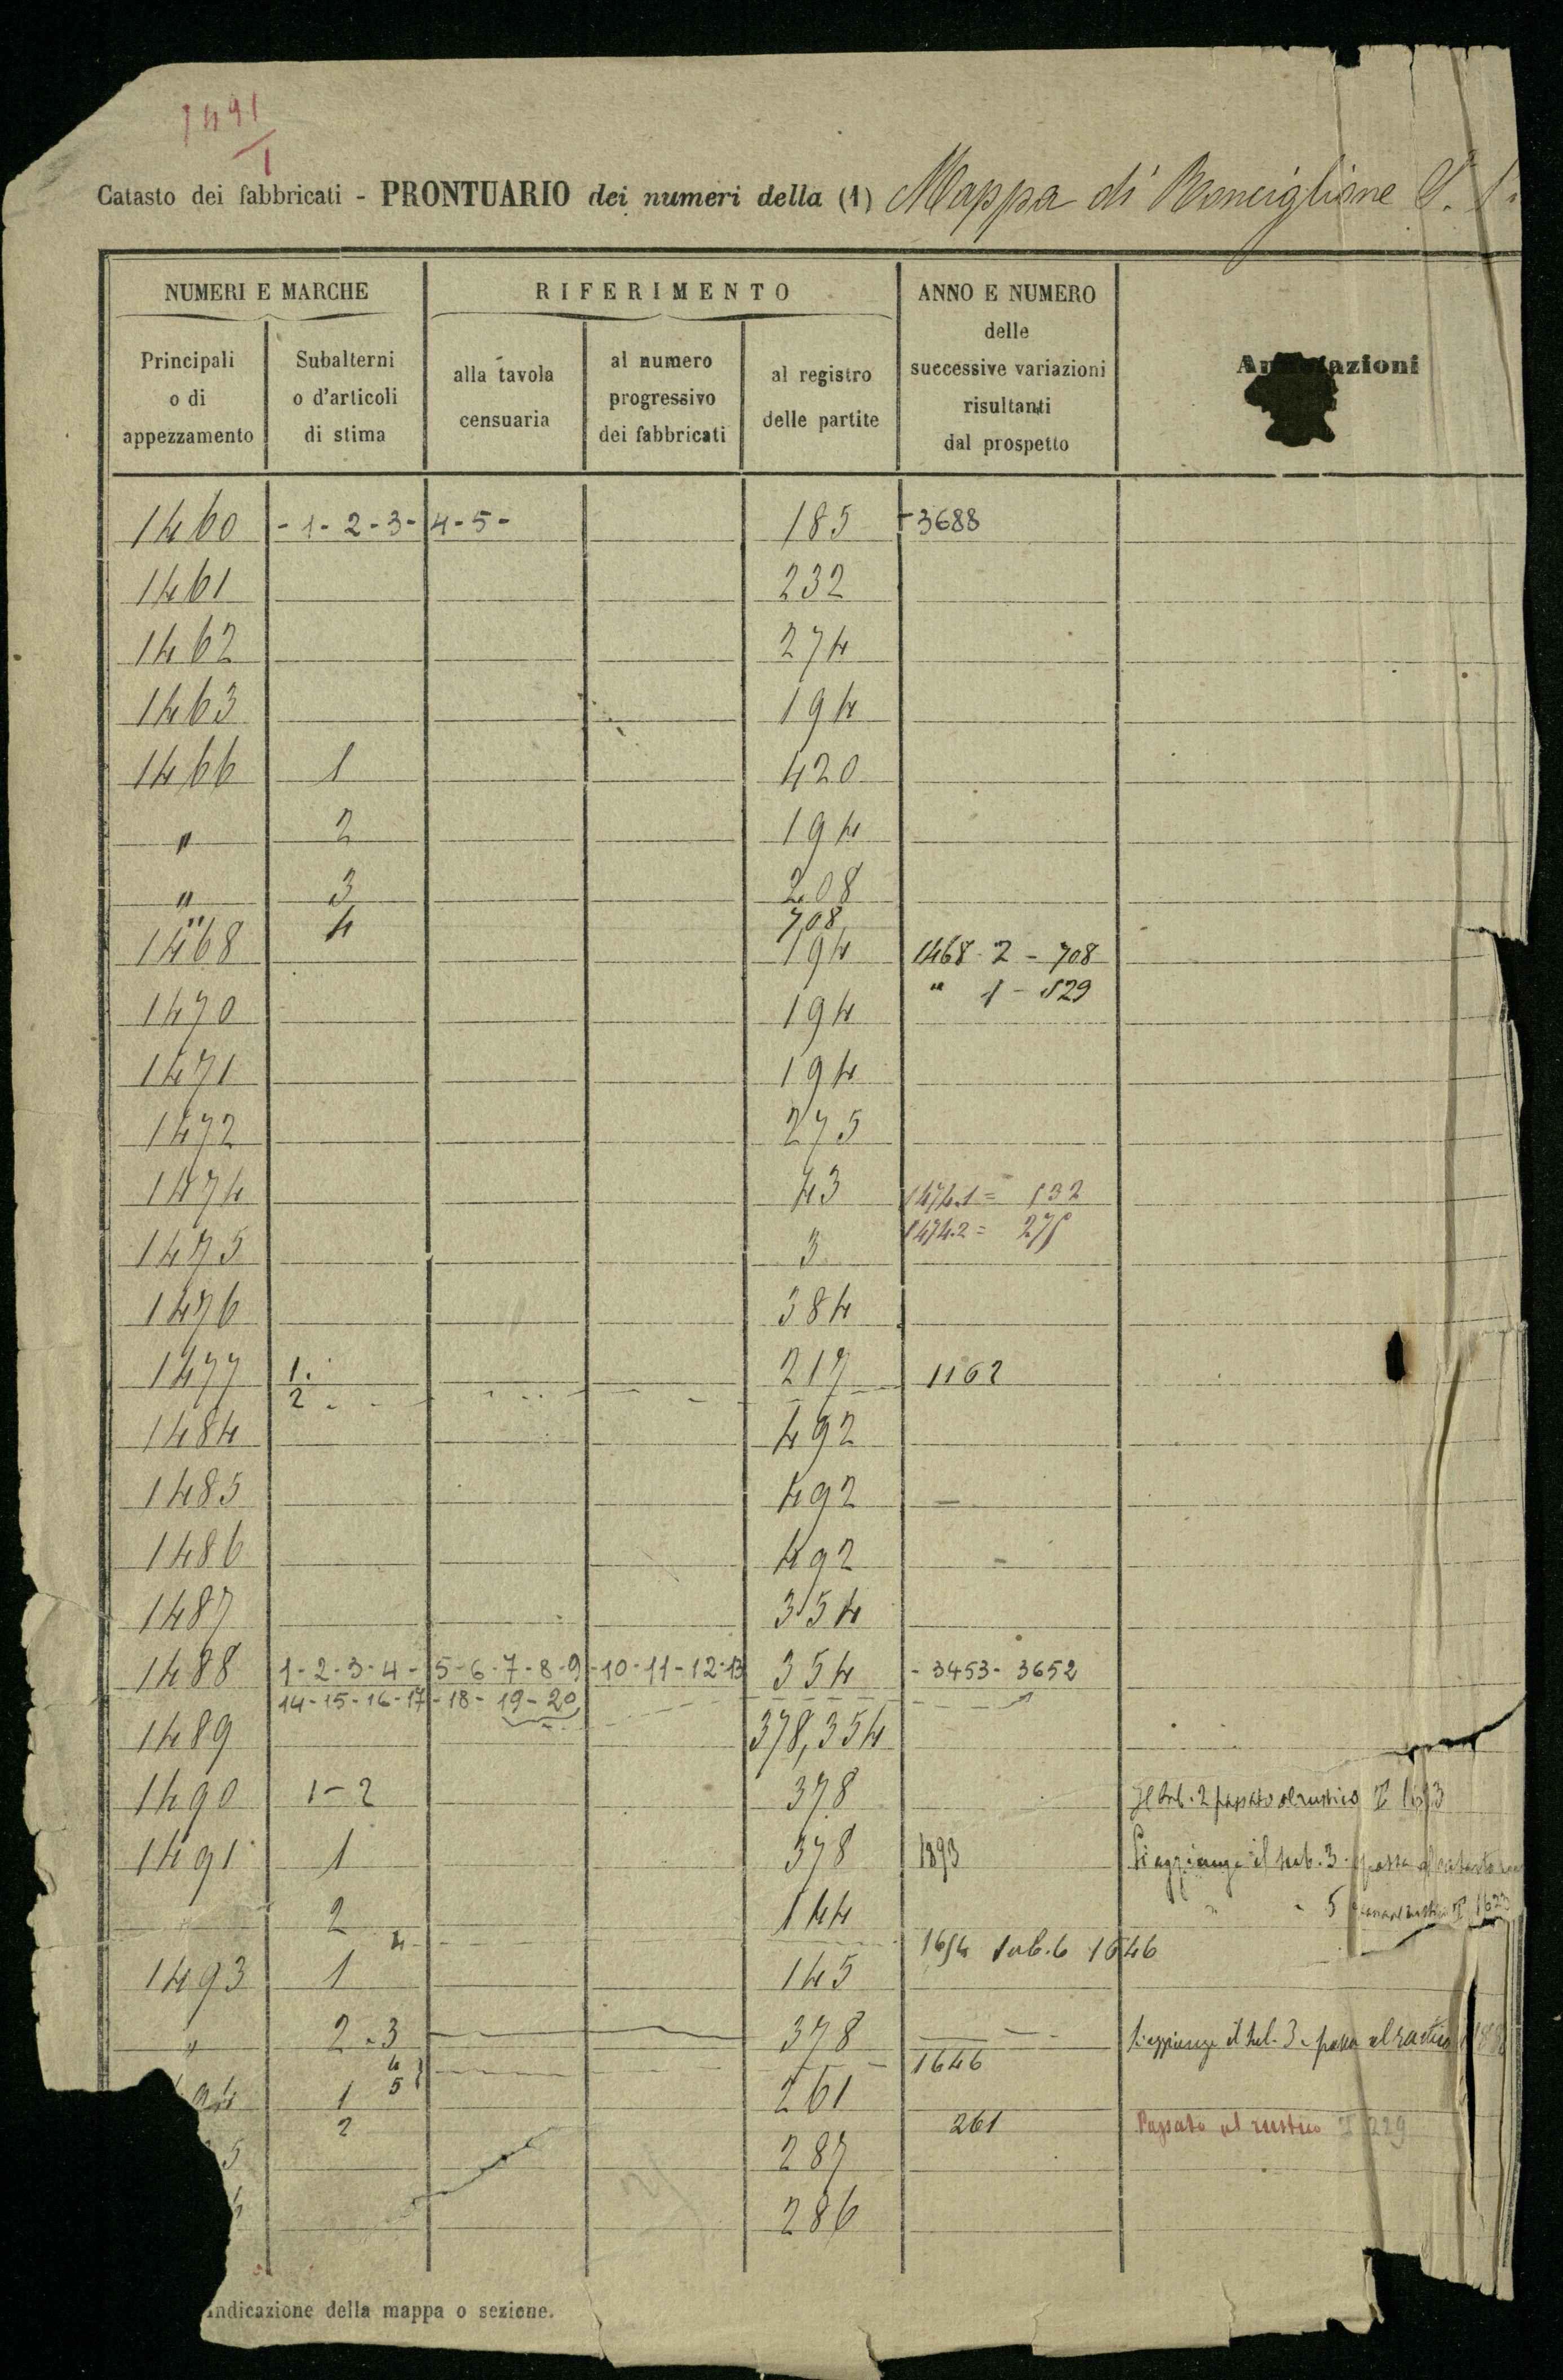 1491
1
Catasto dei fabbricati - PRONTUARIO dei numeri della (1) Mappa di Ronciglione S. 1.
NUMERI E MARCHE RIFERIMENTO ANNO E NUMERO delle successive variazioni risultanti dal prospetto
Principali o di appezzamento Subalterni o d'articoli di stima alla tavola censuaria al numero progressivo dei fabbricati al registro delle partite
1460 - 1 - 2 - 3 - 4 - 5 - 185 - 3688
1461 232
1462 274
1463 194
1466 1 420
" 2 194
" 3 208
" 4 708
1468 194 1468 - 2 - 708
" 1 - 529
1470 194
1471 194
1472 275
1474 43 1474.1 = 132
1474.2 =
1475 3
1476 384
1477 1. 217 1162
2
1484 492
1485 492
1486 492
1487 354
1488 1 - 2 - 3 - 4 - 5 - 6 - 7 - 8 - 9 - 10 - 11 - 12 - 13 354 - 3453 - 3652
14 - 15 - 16 - 17 - 18 - 19 - 20
1489 378, 354
1490 1 - 2 378 Il sub. 2 passato al rustico
1491 1 378 1893 Si aggiunge il sub. 3 passa al catasto
2 144 " " 5
4 sub. 6 1646
1493 1 145
" 2 - 3 378 Si aggiunge il sub. 3 e passa al rustico
4 1646
5
94 1 261
2 261 Passato al rustico T 229
5 287
6 286
indicazione della mappa o sezione.